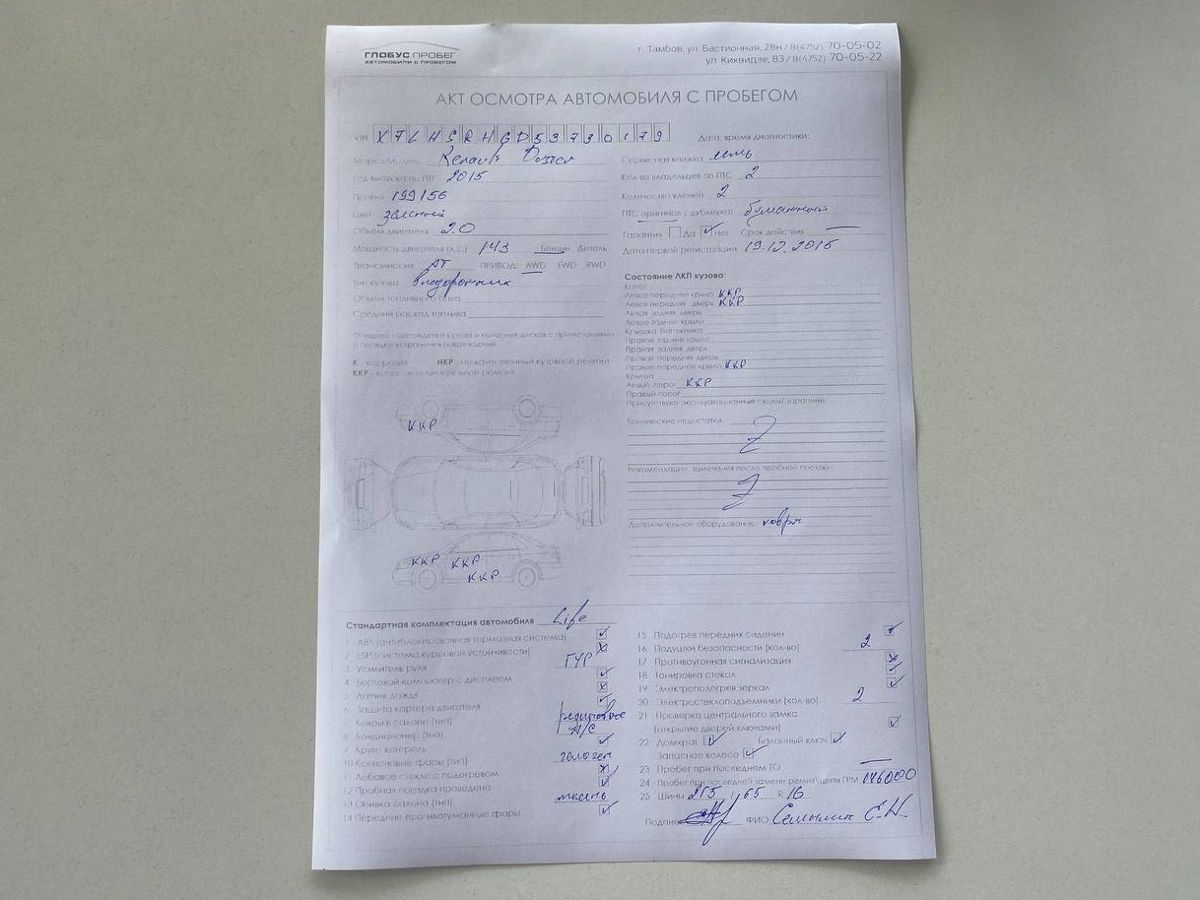 ГЛОБУС ПРОБЕГ
АВТОМОБИЛИ С ПРОБЕГОМ
г. Тамбов, ул. Бастионная, 28н / 8(4752) 70-05-02
ул. Киквидзе, 83 / 8(4752) 70-05-22
АКТ ОСМОТРА АВТОМОБИЛЯ С ПРОБЕГОМ
VIN X7LHSRHGD53780179
Марка/Модель Renault Duster
Год выпуска по ПТС 2015
Пробег 199156
Цвет зеленый
Объем двигателя 2.0
Мощность двигателя (л.с.) 143 Бензин Дизель
Трансмиссия АТ ПРИВОД: AWD FWD RWD
Тип кузова внедорожник
Объем топливного бака
Средний расход топлива
Опишите повреждения кузова и колесных дисков с примечаниями
о порядке устранения повреждений
К - корректит НКР - не качественный кузовной ремонт
ККР - качественный кузовной ремонт
ККР
ККР ККР
ККР
Дата, время диагностики:
Сервисная книжка есть
Кол-во владельцев по ПТС 2
Количество ключей 2
ПТС оригинал / дубликат бумажный
Гарантия Да Нет Срок действия —
Дата первой регистрации 19.12.2015
Состояние ЛКП кузова:
Капот
Левое переднее крыло ККР
Левая передняя дверь ККР
Левая задняя дверь
Левое заднее крыло
Крышка багажника
Правое заднее крыло
Правая задняя дверь
Правая передняя дверь
Правое переднее крыло ККР
Крыша
Левый порог ККР
Правый порог
Присутствуют эксплуатационные сколы/царапины
Технические недостатки:
Рекомендации, замечания после пробной поездки:
Дополнительное оборудование: ковры
Стандартная комплектация автомобиля Life
1 ABS (антиблокировочная тормозная система)
2 ESP (система курсовой устойчивости)
3 Усилитель руля ГУР
4 Бортовой компьютер с дисплеем
5 Датчик дождя
6 Защита картера двигателя
Ковры в салоне (тип) резиновые
8 Кондиционер (тип) A/C
9 Круиз контроль
10 Ксеноновые фары (тип) галоген
11 Лобовое стекло с подогревом
12 Пробная поездка проведена
13 Обивка салона (тип) ткань
14 Передние противотуманные фары
15 Подогрев передних сидений
16 Подушки безопасности (кол-во) 2
17 Противоугонная сигнализация
18 Тонировка стекол
19 Электроподогрев зеркал
20 Электростеклоподъемники (кол-во) 2
21 Проверка центрального замка
(открытие дверей ключами)
22 Домкрат Балонный ключ
Запасное колесо
23 Пробег при последнем ТО —
24 Пробег при последней замене ремня/цепи ГРМ 146000
25 Шины 215 / 65 R 16
Подпись ФИО